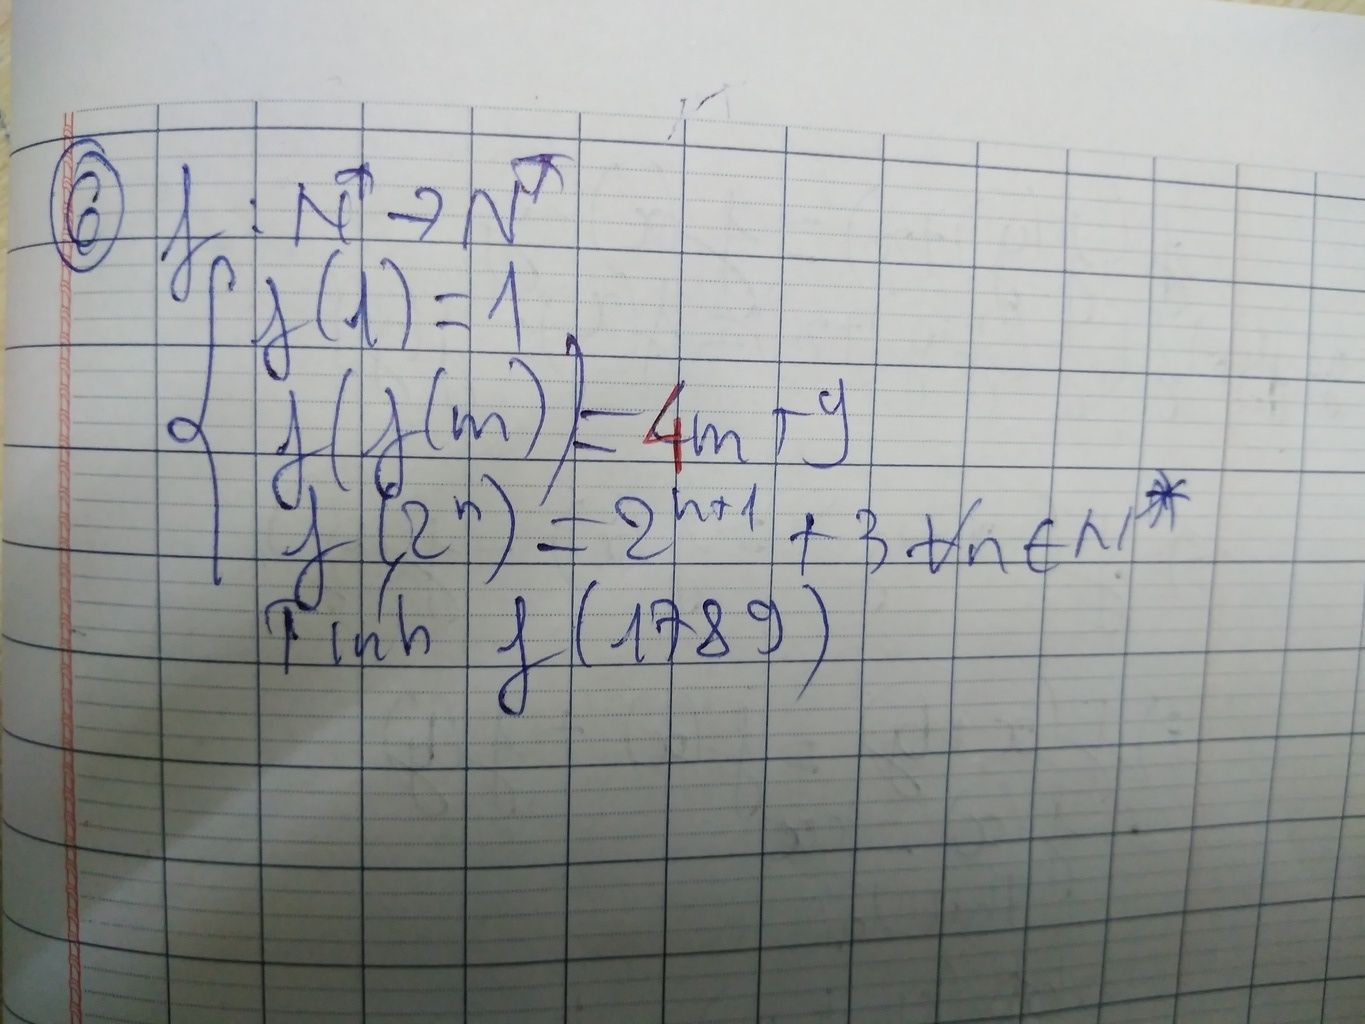 6 f : N* → N*
f(1) = 1
f(f(m)) = 4m + 9
f(2^n) = 2^{n+1} + 3 ∀n ∈ N*
Tính f(1789)